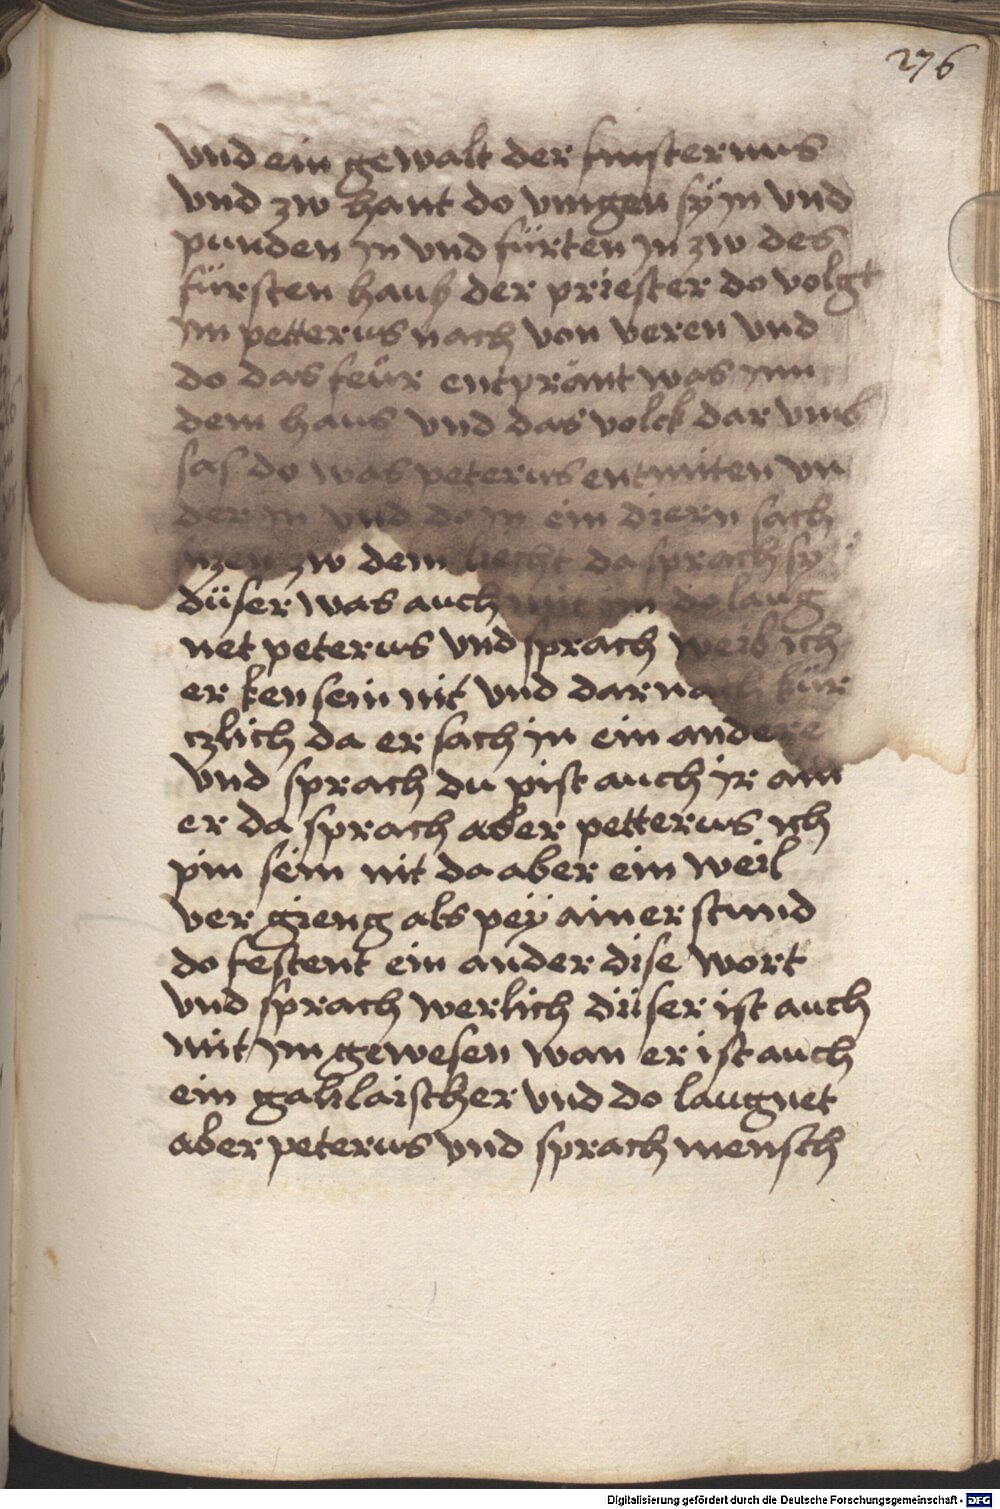 276
vnd ein gewalt der finsternus
vnd zw hant do vingen sÿ in vnd
punden in vnd fürten in zw des
fürsten hauß der priester do volgt
im petterus nach von veren vnd
do das feür entprant was inn
dem haus vnd das volck dar vmb
sas do was peterus entmiten vn
der in vnd do in ein diern sach
sizen zw dem liecht da sprach sy
düser was auch mit im do laug
net peterus vnd sprach weib ich
er ken sein nit vnd dar nach kür
czlich da er sach in ein andere
vnd sprach du pist auch ir ain
er da sprach aber petterus ich
pin sein nit da aber ein weil
ver gieng als peÿ ainer stund
do festent ein ander dise wort
vnd sprach werlich düser ist auch
mit im gewesen wan er ist auch
ein galilaischer vnd do laugnet
aber peterus vnd sprach mensch
Digitalisierung gefördert durch die Deutsche Forschungsgemeinschaft - DFG